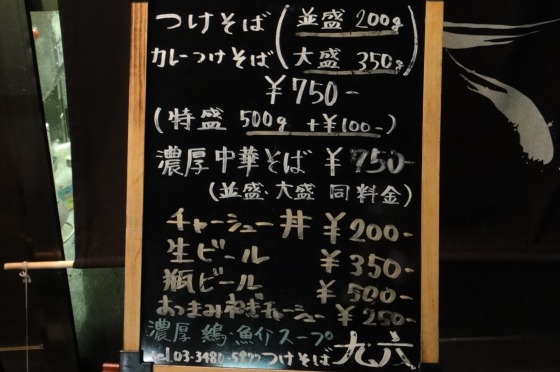 つけそば(並盛 200g
カレーつけそば 大盛 350g)
¥750-
(特盛 500g +¥100-)
濃厚中華そば ¥750-
(並盛・大盛 同料金)
チャーシュー丼 ¥200-
生ビール ¥350-
瓶ビール ¥500-
おつまみねぎチャーシュー ¥250-
濃厚 鶏・魚介スープ
tel 03-3480- つけそば 九六